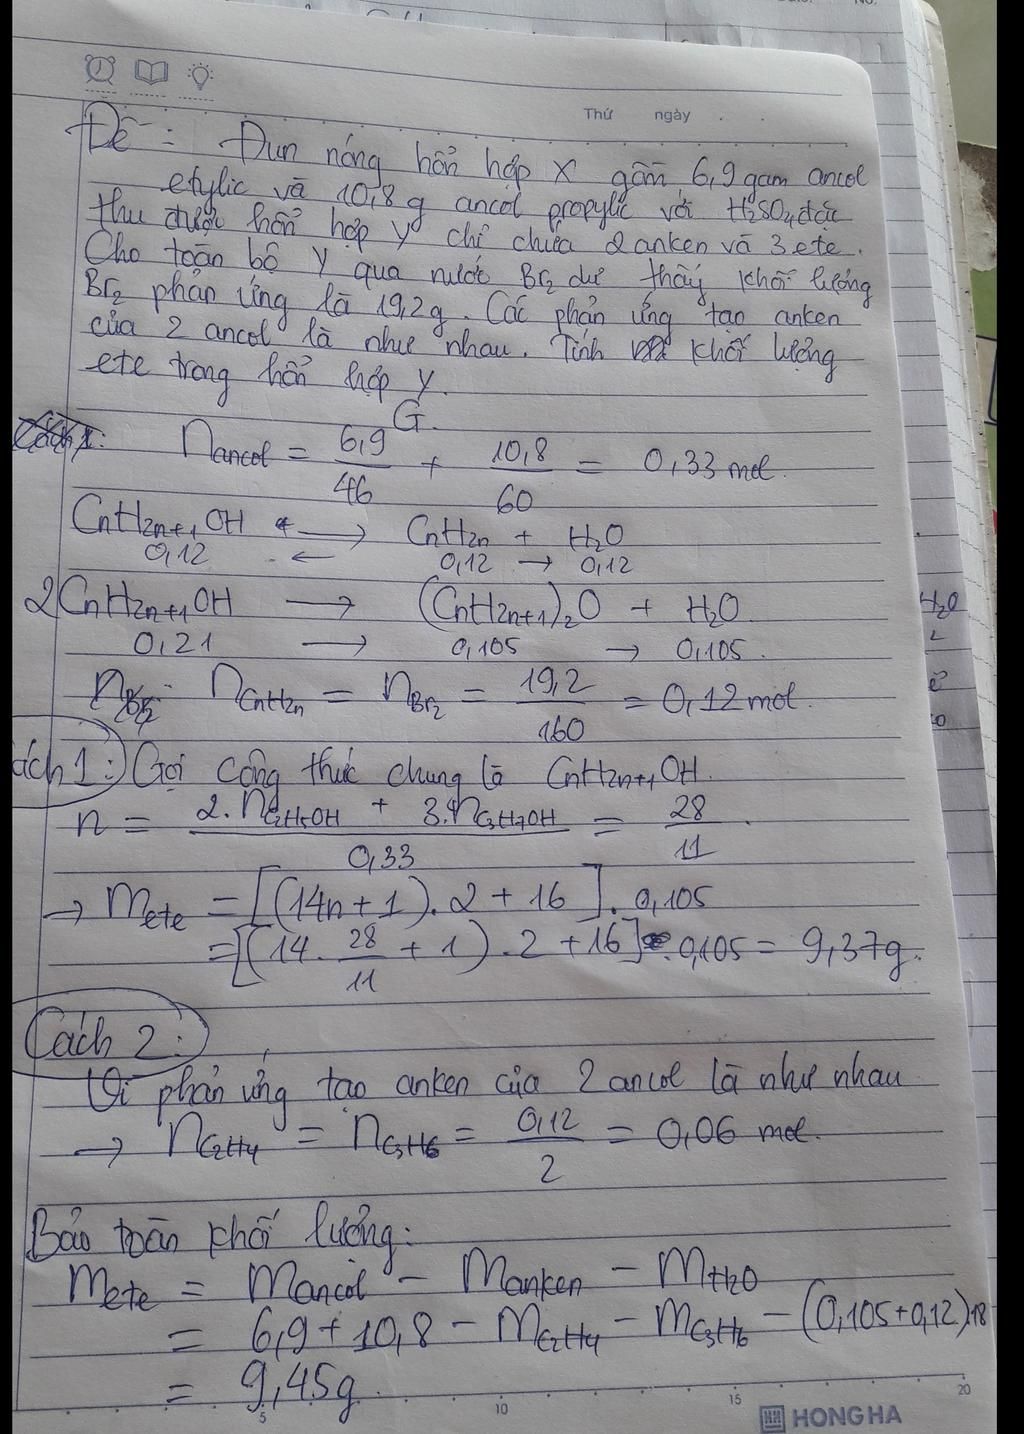 Thứ ngày
Đề : Đun nóng hỗn hợp X gồm 6,9 gam ancol
etylic và 10,8 g ancol propylic với H2SO4 đặc
thu được hỗn hợp Y chỉ chứa 2 anken và 3 ete.
Cho toàn bộ Y qua nước Br2 dư thấy khối lượng
Br2 phản ứng là 19,2g. Các phản ứng tạo anken
của 2 ancol là như nhau. Tính khối lượng
ete trong hỗn hợp Y.
G.
nancol = 6,9/46 + 10,8/60 = 0,33 mol.
CnH2n+1OH ⟶ CnH2n + H2O
0,12 ← 0,12 → 0,12
2CnH2n+1OH ⟶ (CnH2n+1)2O + H2O
0,21 ⟶ 0,105 → 0,105.
nCnH2n = nBr2 = 19,2/160 = 0,12 mol.
ách 1: Gọi công thức chung là CnH2n+1OH.
n = (2.nC2H5OH + 3.nC3H7OH)/0,33 = 28/11.
→ mete = [(14n+1).2+16].0,105
= [(14.28/11+1).2+16].0,105 = 9,37g.
Cách 2:
Vì phản ứng tạo anken của 2 ancol là như nhau
→ nC2H4 = nC3H6 = 0,12/2 = 0,06 mol.
Bảo toàn khối lượng:
mete = mancol - manken - mH2O
= 6,9+10,8 - mC2H4 - mC3H6 - (0,105+0,12)18
= 9,45g.
5 10 15 20
HONG HA
H2O